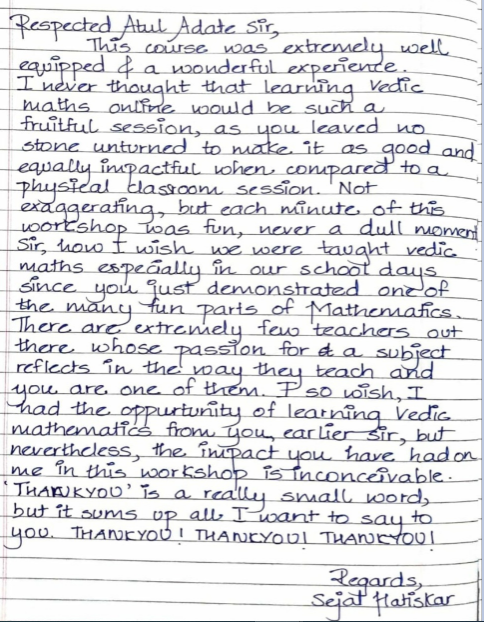 Respected Atul Adate Sir,
This course was extremely well
equipped & a wonderful experience.
I never thought that learning Vedic
maths online would be such a
fruitful session, as you leaved no
stone unturned to make it as good and
equally impactful when compared to a
physical classroom session. Not
exaggerating, but each minute of this
workshop was fun, never a dull moment
Sir, how I wish we were taught vedic
maths especially in our school days
since you just demonstrated one of
the many fun parts of Mathematics.
There are extremely few teachers out
there whose passion for a subject
reflects in the way they teach and
you are one of them. I so wish, I
had the oppurtunity of learning Vedic
mathematics from you, earlier sir, but
nevertheless, the impact you have had on
me in this workshop is inconceivable.
'THANKYOU' is a really small word,
but it sums up all I want to say to
you. THANKYOU! THANKYOU! THANKYOU!
Regards,
Sejal Hatiskar